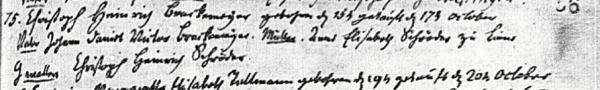 75. Christoph Heinrich Brackemeyer gebohren d 15t getauft d 17t October
Vater Johann Daniel Brackemeyer. Mutter. Elisabeth Schröder zu
Gevatter Christoph Heinrich Schröder.
Elisabeth gebohren d 19t getauft d 20t October